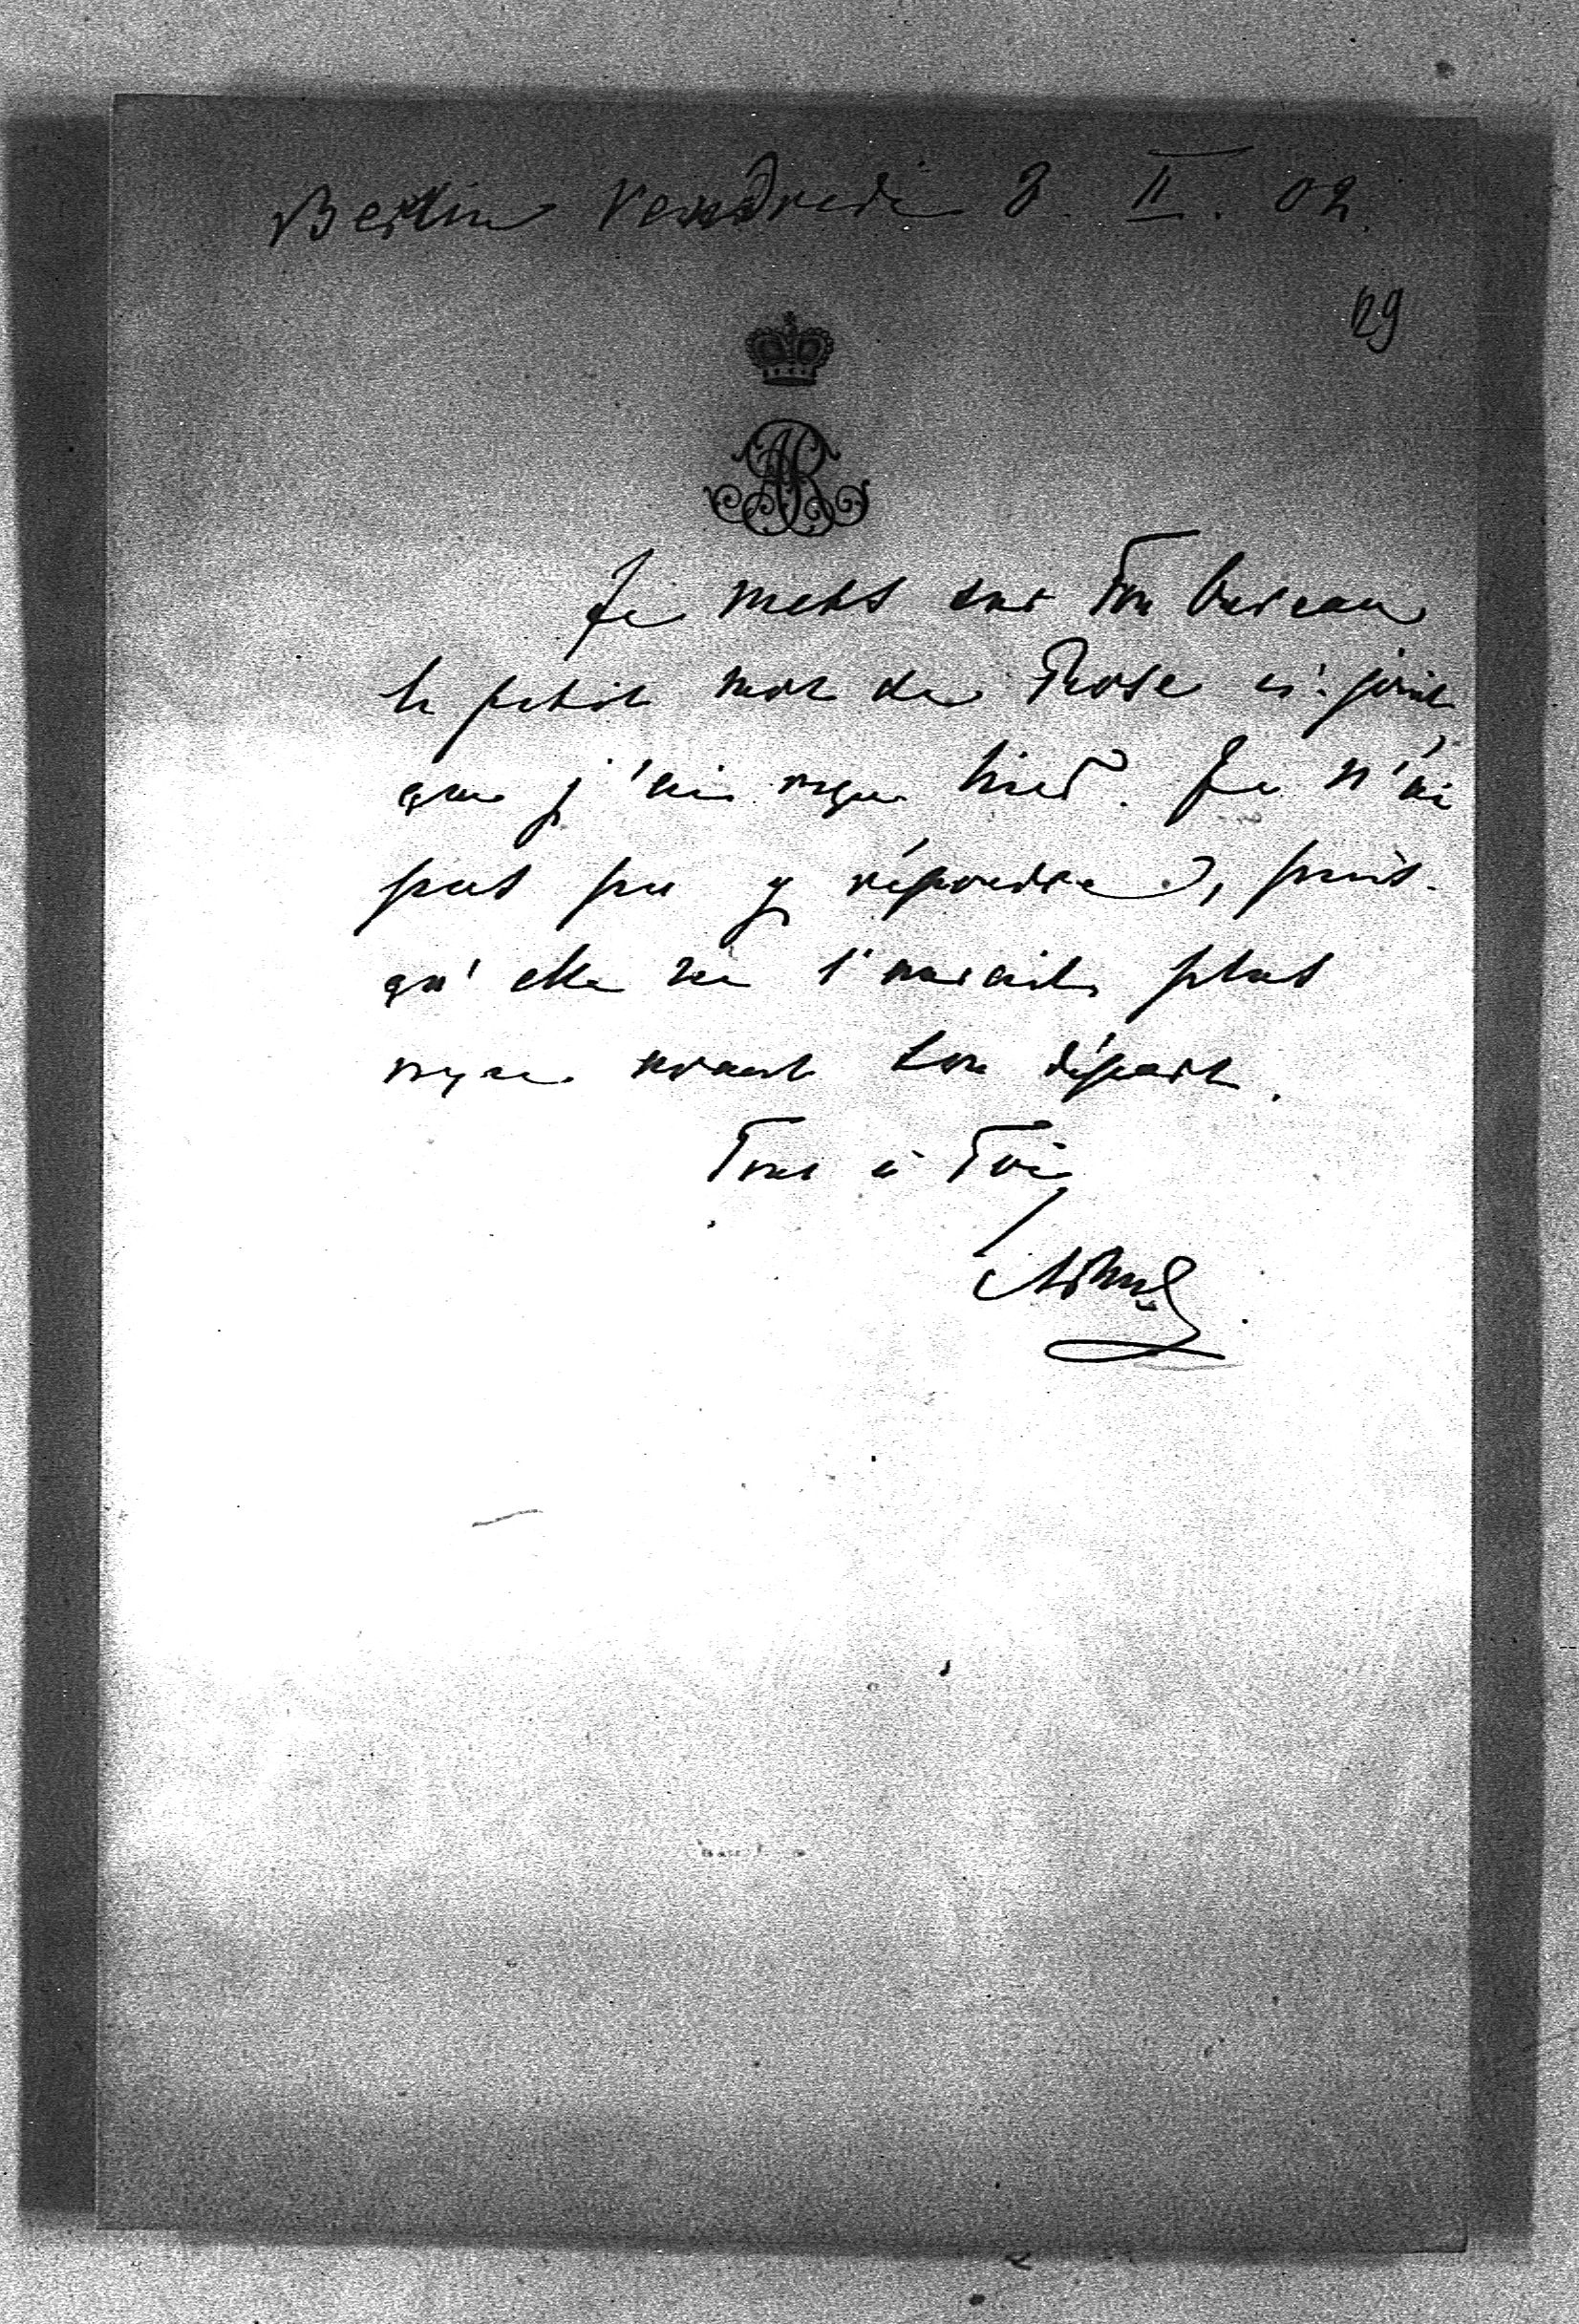 Berlin Vendredi 7. II. 02.
129
AR
Je mets sur Ton bureau
le petit mot de Rose ci-joint,
que j'ai reçu hier. Je n'ai
pas pu y répondre, puis-
qu'elle ne l'aurait plus
reçue avant son départ.
Tout à Toi